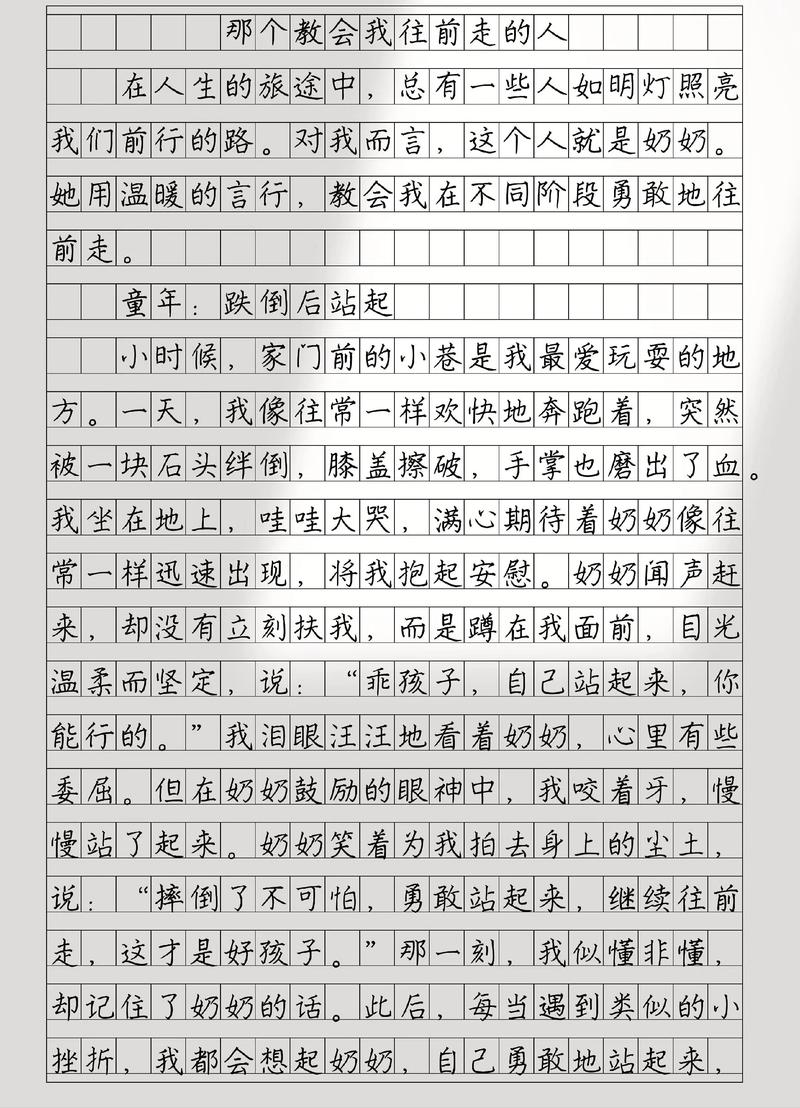 那个教会我往前走的人
在人生的旅途中，总有一些人如明灯照亮
我们前行的路。对我而言，这个人就是奶奶。
她用温暖的言行，教会我在不同阶段勇敢地往
前走。
童年：跌倒后站起
小时候，家门前的小巷是我最爱玩耍的地
方。一天，我像往常一样欢快地奔跑着，突然
被一块石头绊倒，膝盖擦破，手掌也磨出了血。
我坐在地上，哇哇大哭，满心期待着奶奶像往
常一样迅速出现，将我抱起安慰。奶奶闻声赶
来，却没有立刻扶我，而是蹲在我面前，目光
温柔而坚定，说：“乖孩子，自己站起来，你
能行的。”我泪眼汪汪地看着奶奶，心里有些
委屈。但在奶奶鼓励的眼神中，我咬着牙，慢
慢站了起来。奶奶笑着为我拍去身上的尘土，
说：“摔倒了不可怕，勇敢站起来，继续往前
走，这才是好孩子。”那一刻，我似懂非懂，
却记住了奶奶的话。此后，每当遇到类似的小
挫折，我都会想起奶奶，自己勇敢地站起来，